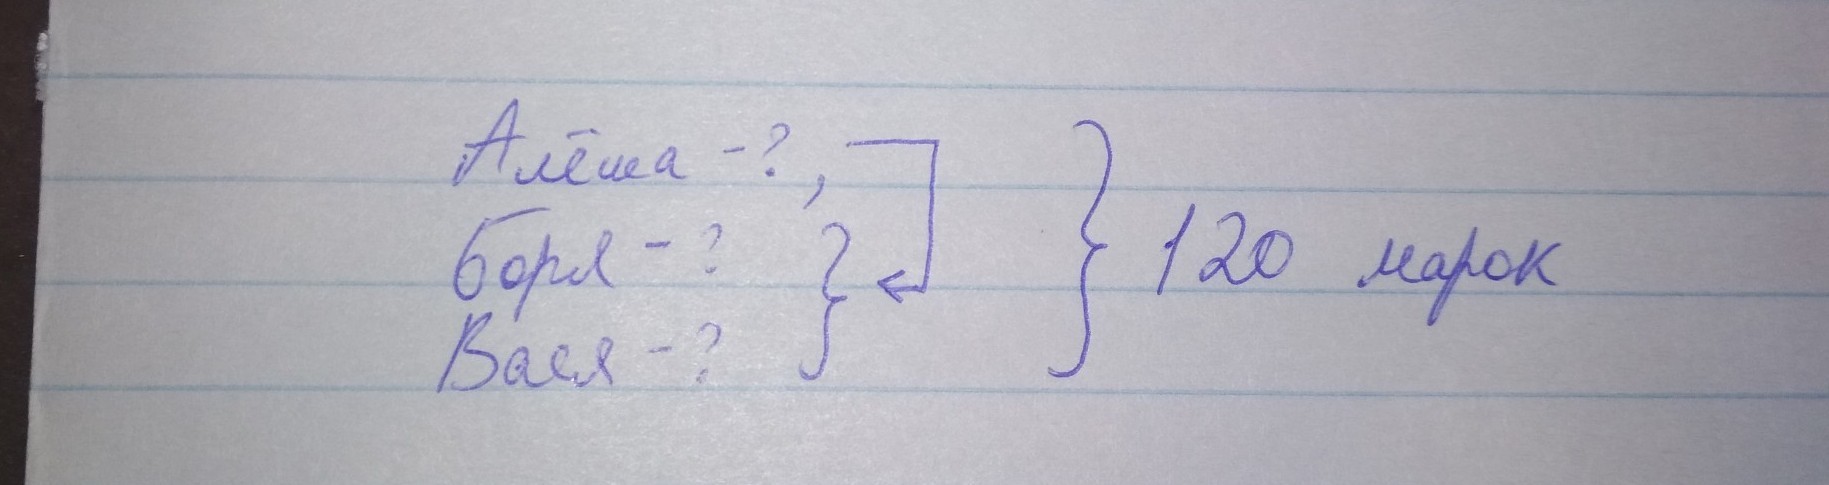 Алёша - ?,
Боря - ?
Вася - ?
120 марок